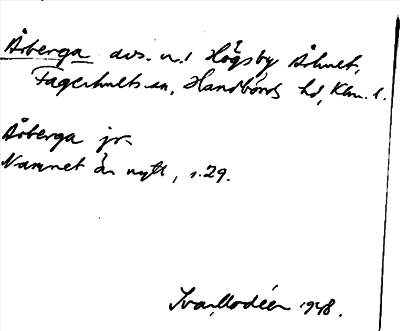 Åsberga avs. n:r 1 Högsby Åkvlt,
Fagerhults sn, Handbörds hd, Klm. l.
Åsberga jr.
Namnet är nytt, s. 29.
Ivar Modéer 1948.